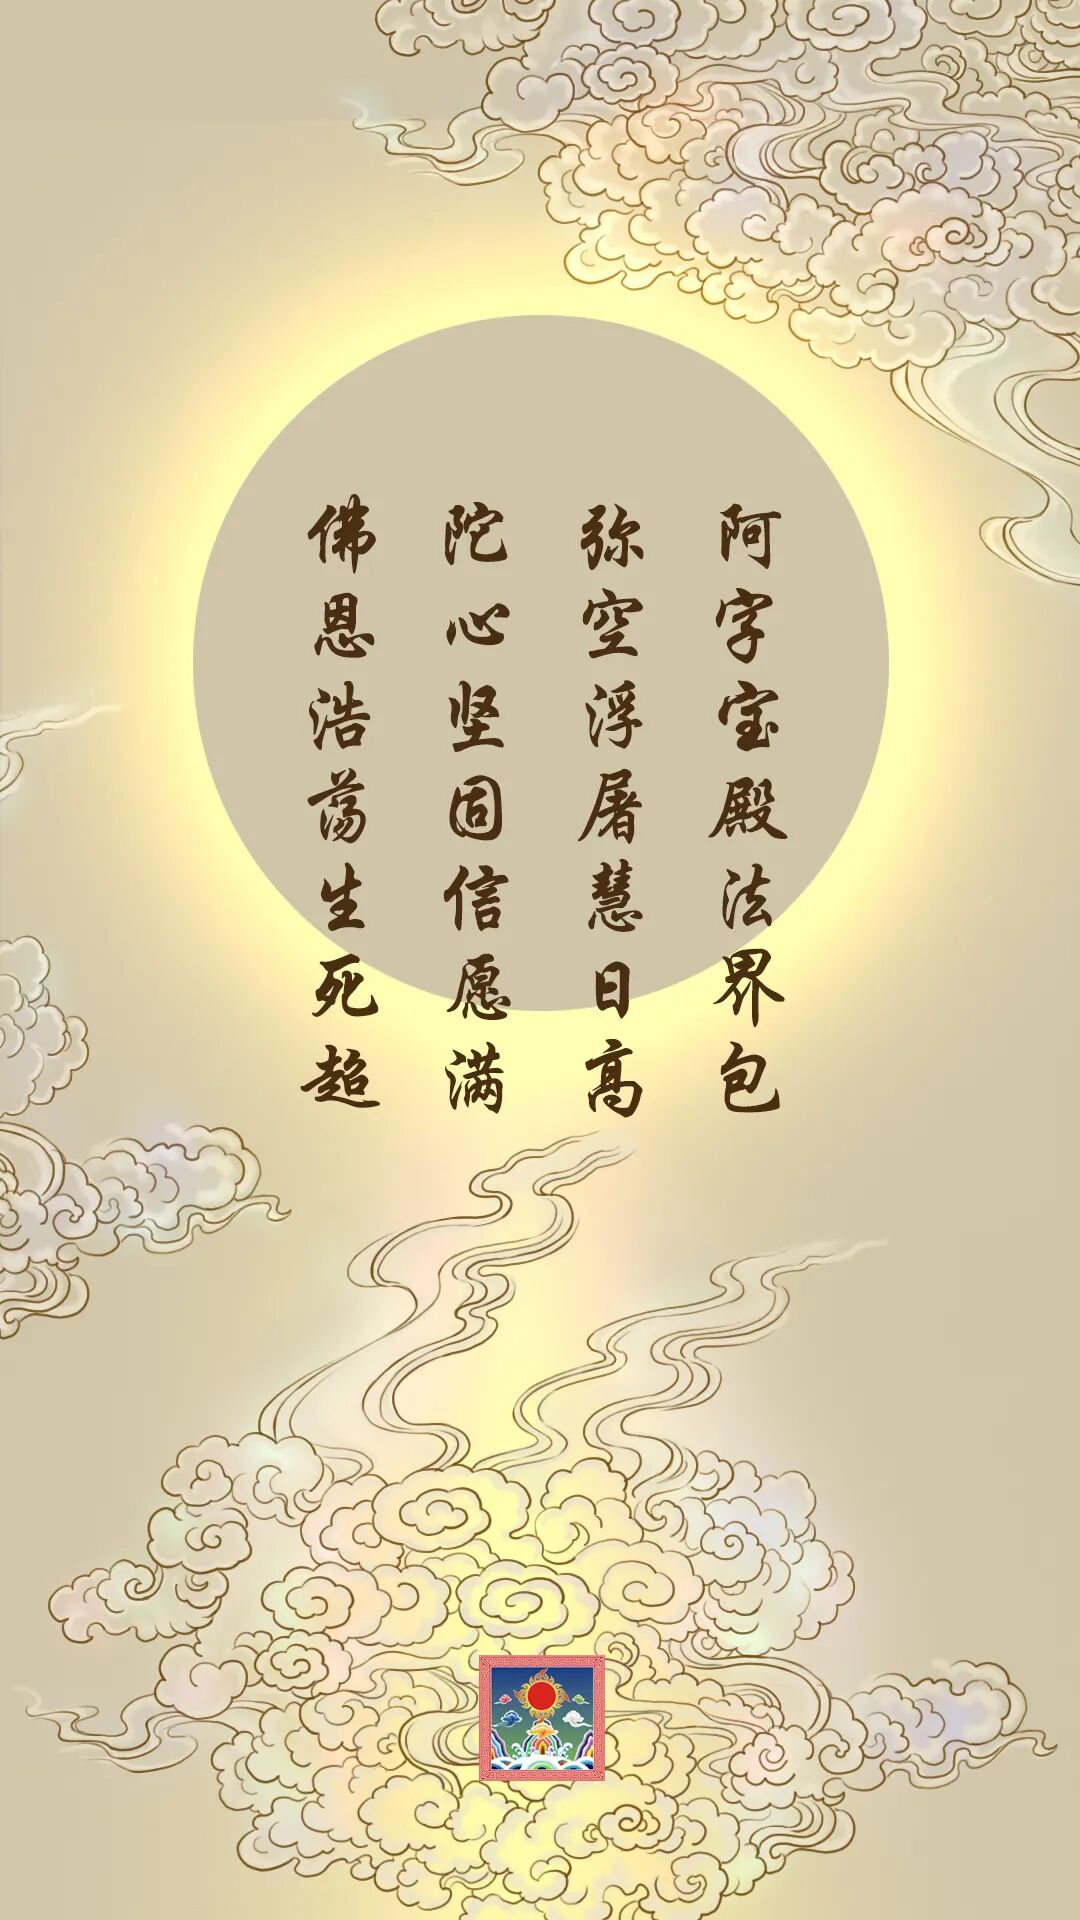 阿字宝殿法界包
弥空浮屠慧日高
陀心坚固信愿满
佛恩浩荡生死超